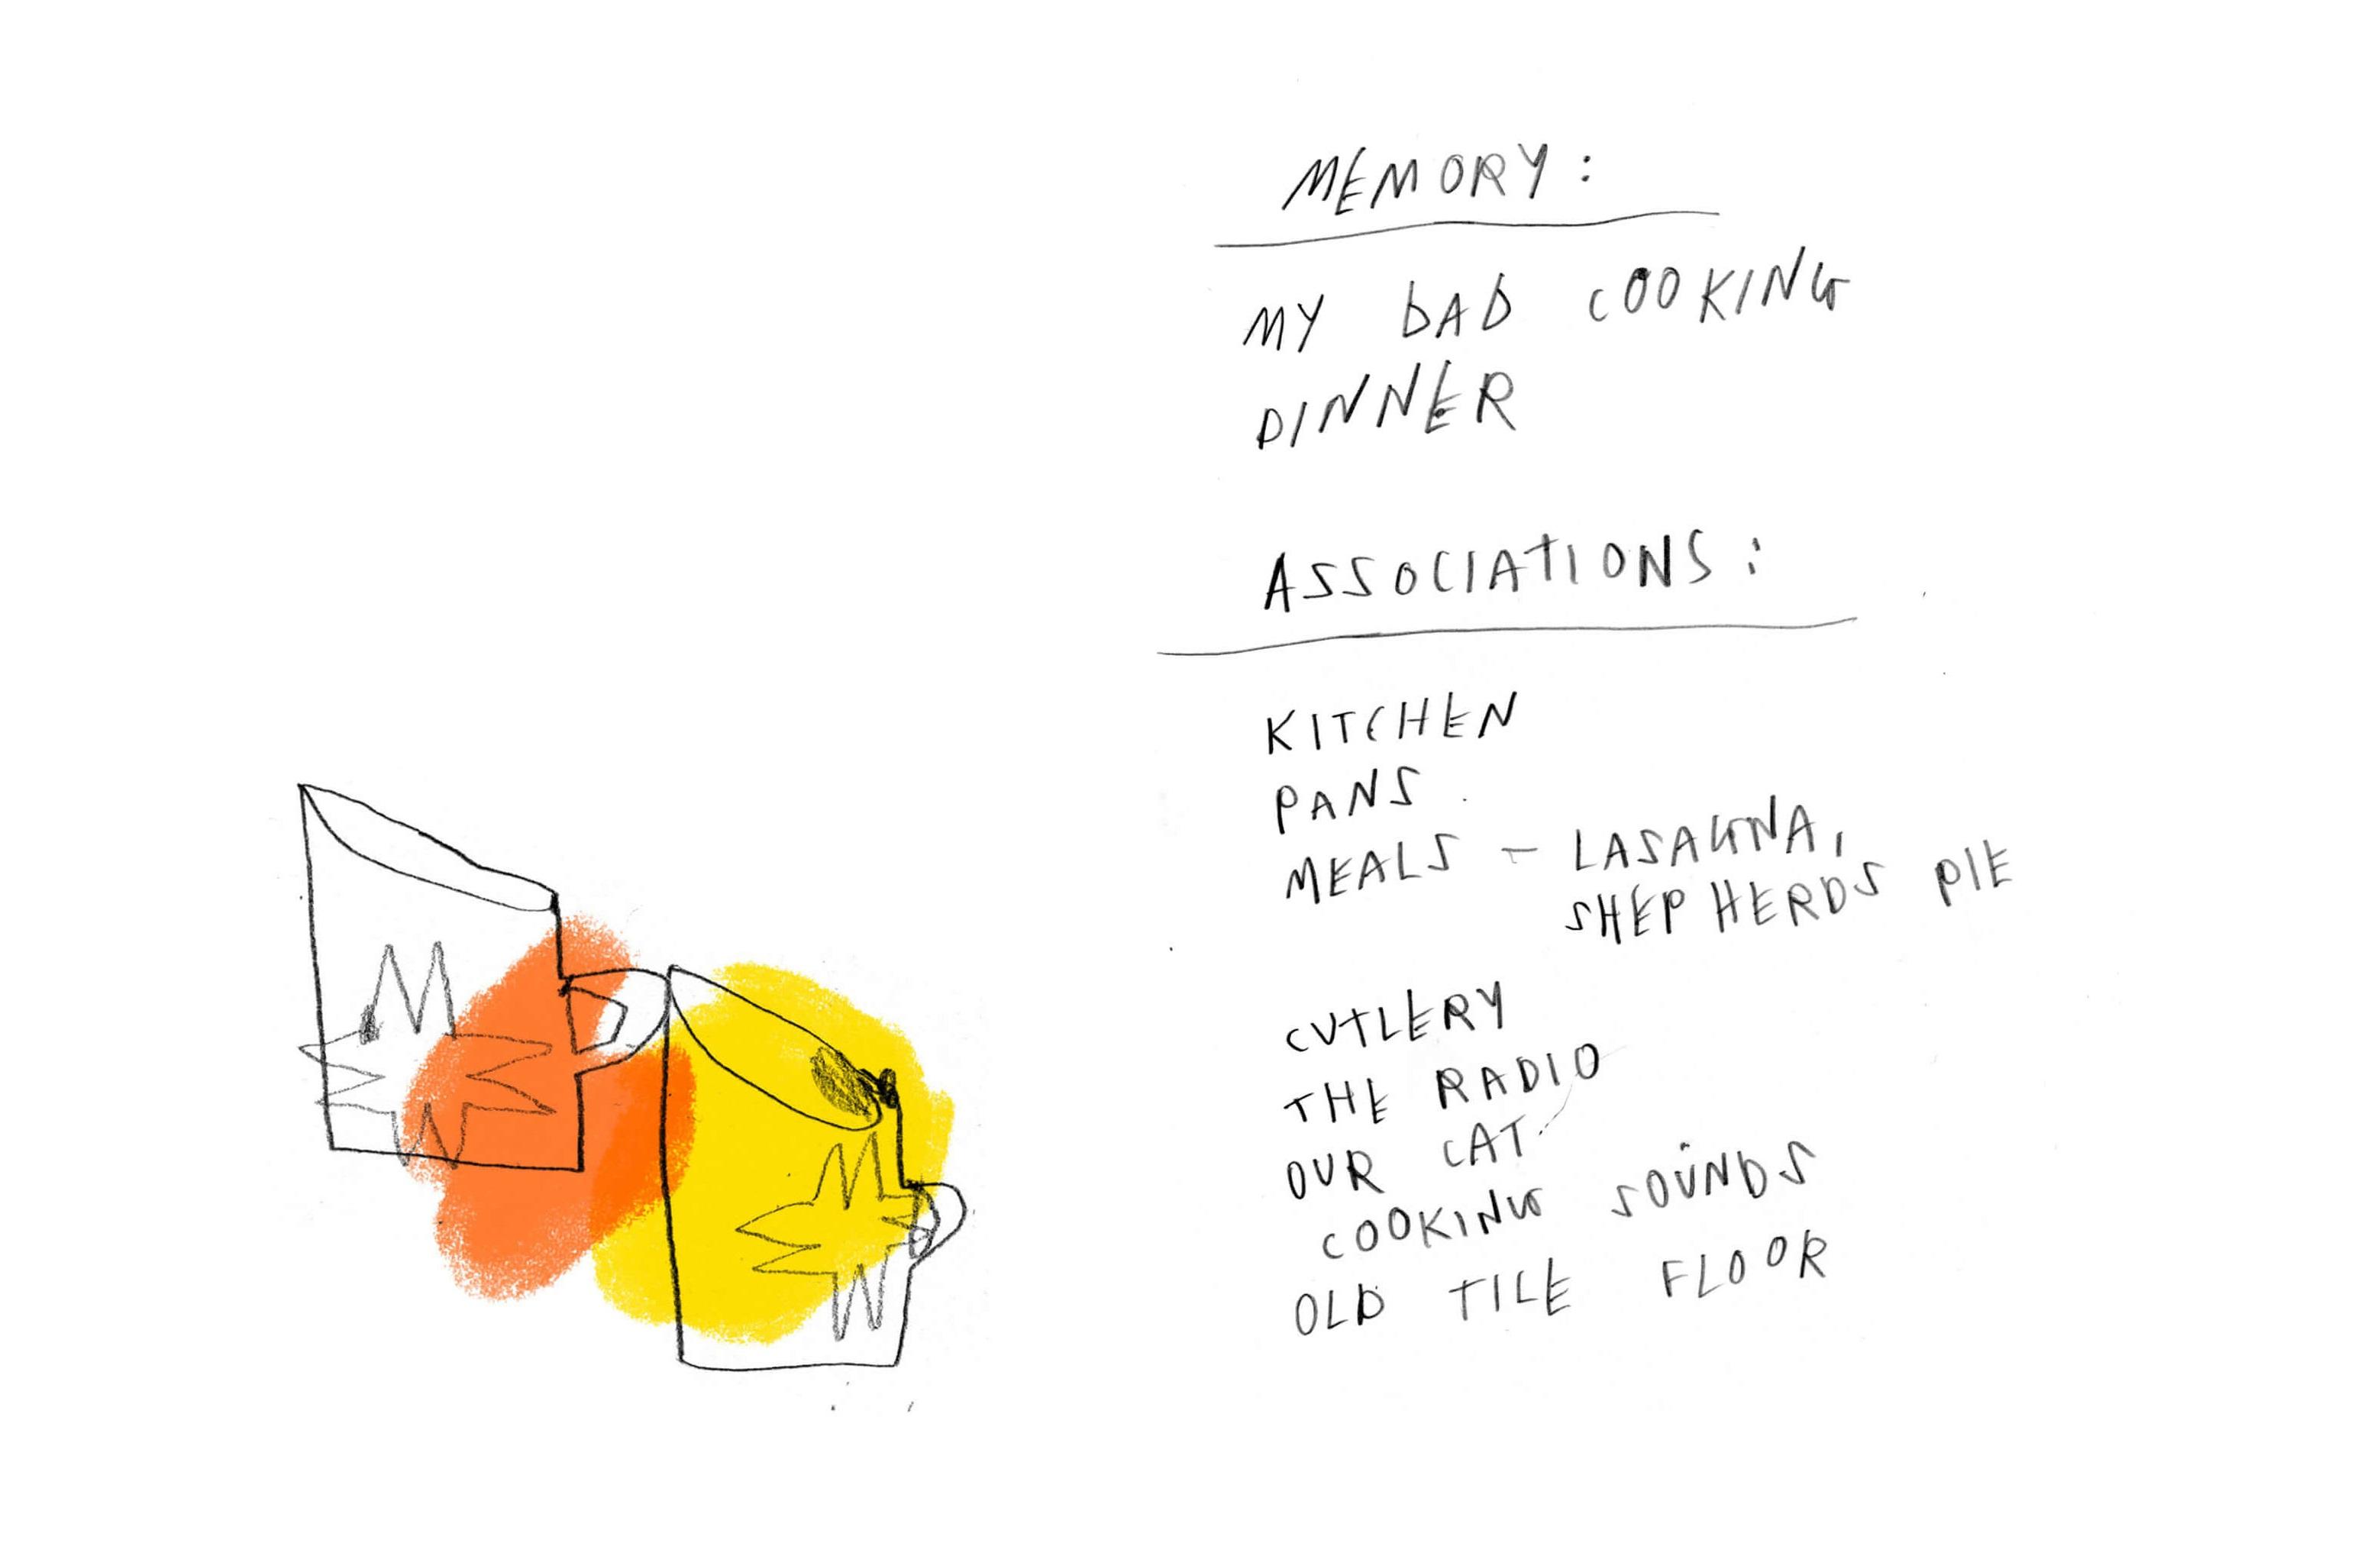 MEMORY:
MY DAD COOKING
DINNER
ASSOCIATIONS:
KITCHEN
PANS
MEALS - LASAGNA,
SHEPHERDS PIE
CUTLERY
THE RADIO
OUR CAT
COOKING SOUNDS
OLD TILE FLOOR